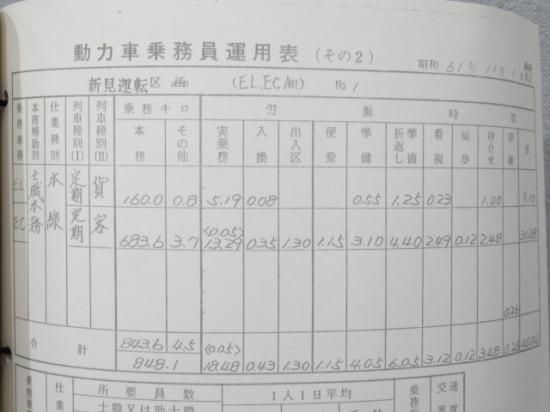 動力車乗務員運用表 (その2)
昭和 61年 11月 1日改正
新見運転区 (EL.EC/組) No 1
乗務車種 本務種助別 仕業種別 列車種別(I) 列車種別(II) 乗務キロ 労働時間
本務 その他 実乗務 入換 出入区 便乗 準備 折返し準備 看視 徒歩 待合せ 計
EL 士職本務 本線 定期 貨 160.0 0.8 5.19 0.08 0.55 1.25 0.23 1.00 9.10
(0.05)
EC 定期 客 683.6 3.7 13.29 0.35 1.30 1.15 3.10 4.40 2.49 0.12 2.48 30.28
0.26
合計 843.6 4.5 (0.05)
848.1 18.48 0.43 1.30 1.15 4.05 6.05 3.12 0.12 3.48 0.26 40.04
乗務車 仕業 所要員数 1人1日平均 乗務 交番 速度
士職又は助士